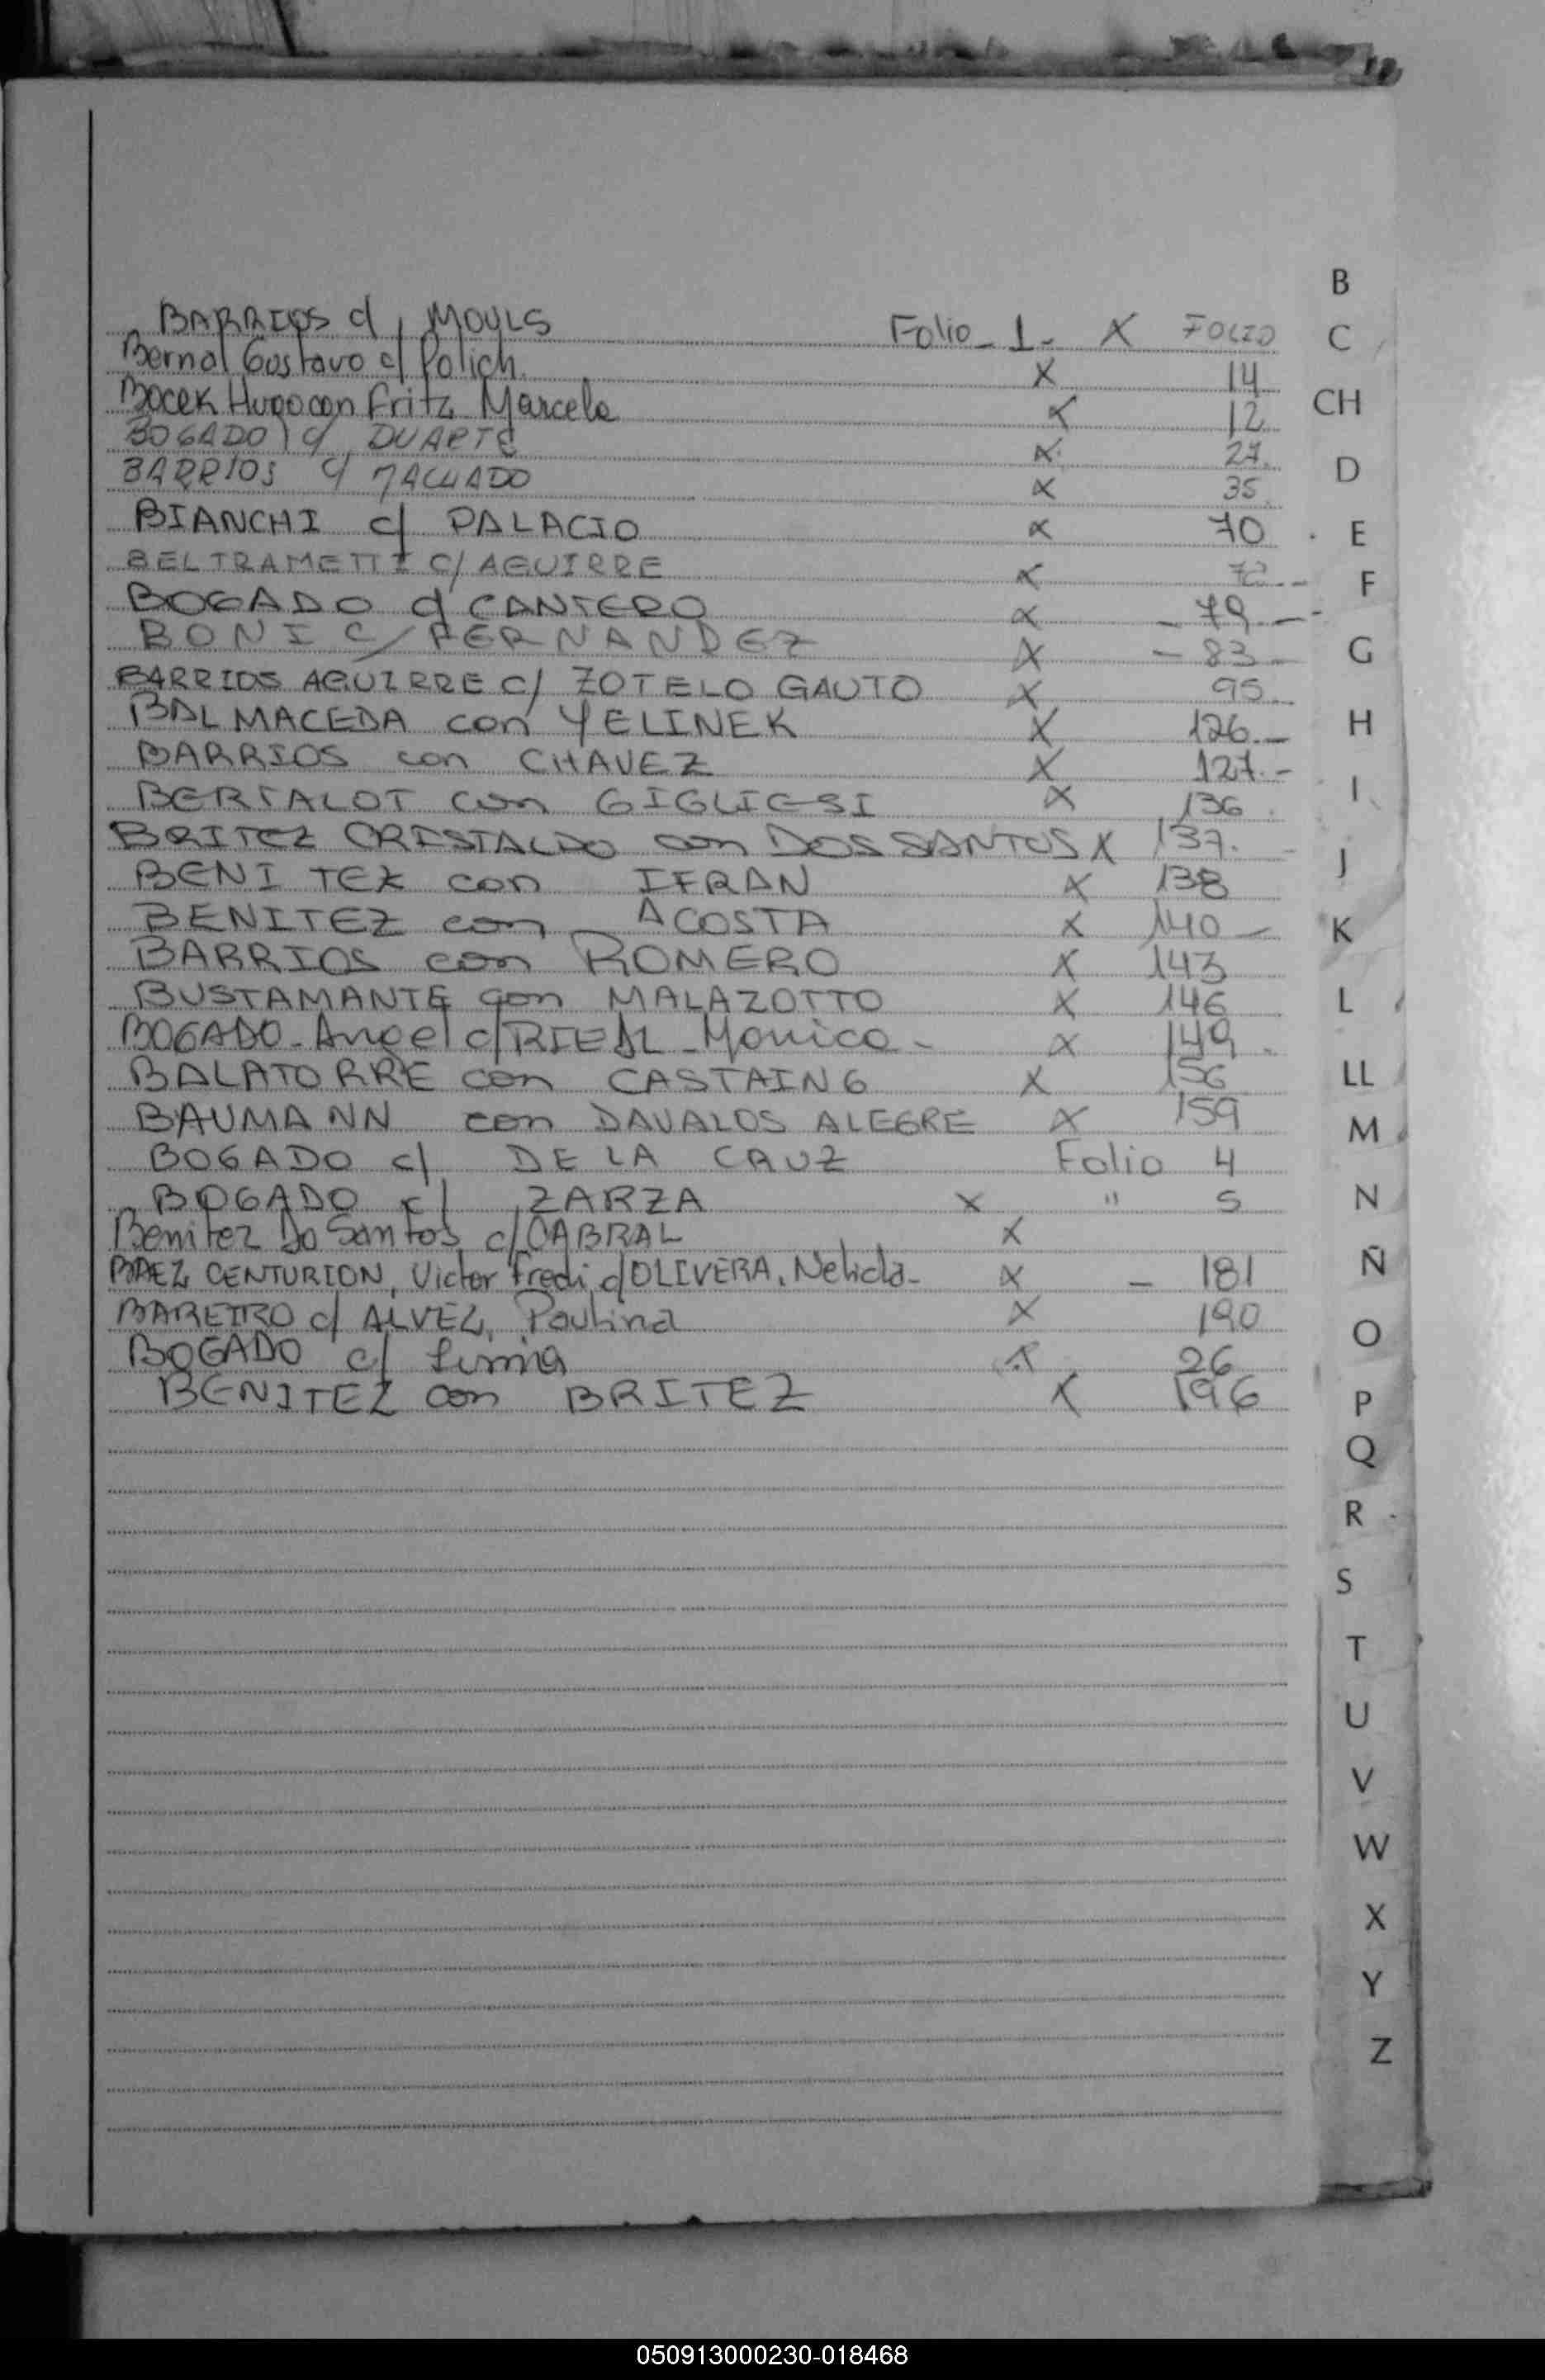 BARRIOS c/ MOULS Folio 1- X FOLIO
Bernal Gustavo c/ Polich X 14
Bocek Hugo con Fritz Marcela X 12
BOGADO c/ DUARTE X 27.
BARRIOS c/ MACHADO X 35
BIANCHI c/ PALACIO X 70
BELTRAMETTI c/ AGUIRRE X
BOGADO c/ CANTERO X - 79.-
BONI c/ FERNANDEZ X - 83 -
BARRIOS AGUIRRE c/ ZOTELO GAUTO X 95.
BALMACEDA con YELINEK X 126.-
BARRIOS con CHAVEZ X 127.-
BERTALOT con GIGLIESI X 136
BRITEZ CRISTALDO con DOS SANTOS X 137.
BENITEZ con IFRAN X 138
BENITEZ con ACOSTA X 140 -
BARRIOS con ROMERO X 143
BUSTAMANTE con MALAZOTTO X 146
BOGADO - Angel c/ RIEAL - Monica - X 149
BALATORRE con CASTAING X 156
BAUMANN con DAVALOS ALEGRE X 159
BOGADO c/ DE LA CRUZ Folio 4
BOGADO c/ ZARZA X " 5
Benitez Do Santos c/ CABRAL X
BAEZ CENTURION, Victor Fredi c/ OLIVERA, Nelida - X - 181
BAREIRO c/ ALVEZ, Paulina X 190
BOGADO c/ X 26
BENITEZ con BRITEZ X 196
B
C
CH
D
E
F
G
H
I
J
K
L
LL
M
N
Ñ
O
P
Q
R
S
T
U
V
W
X
Y
Z
050913000230-018468